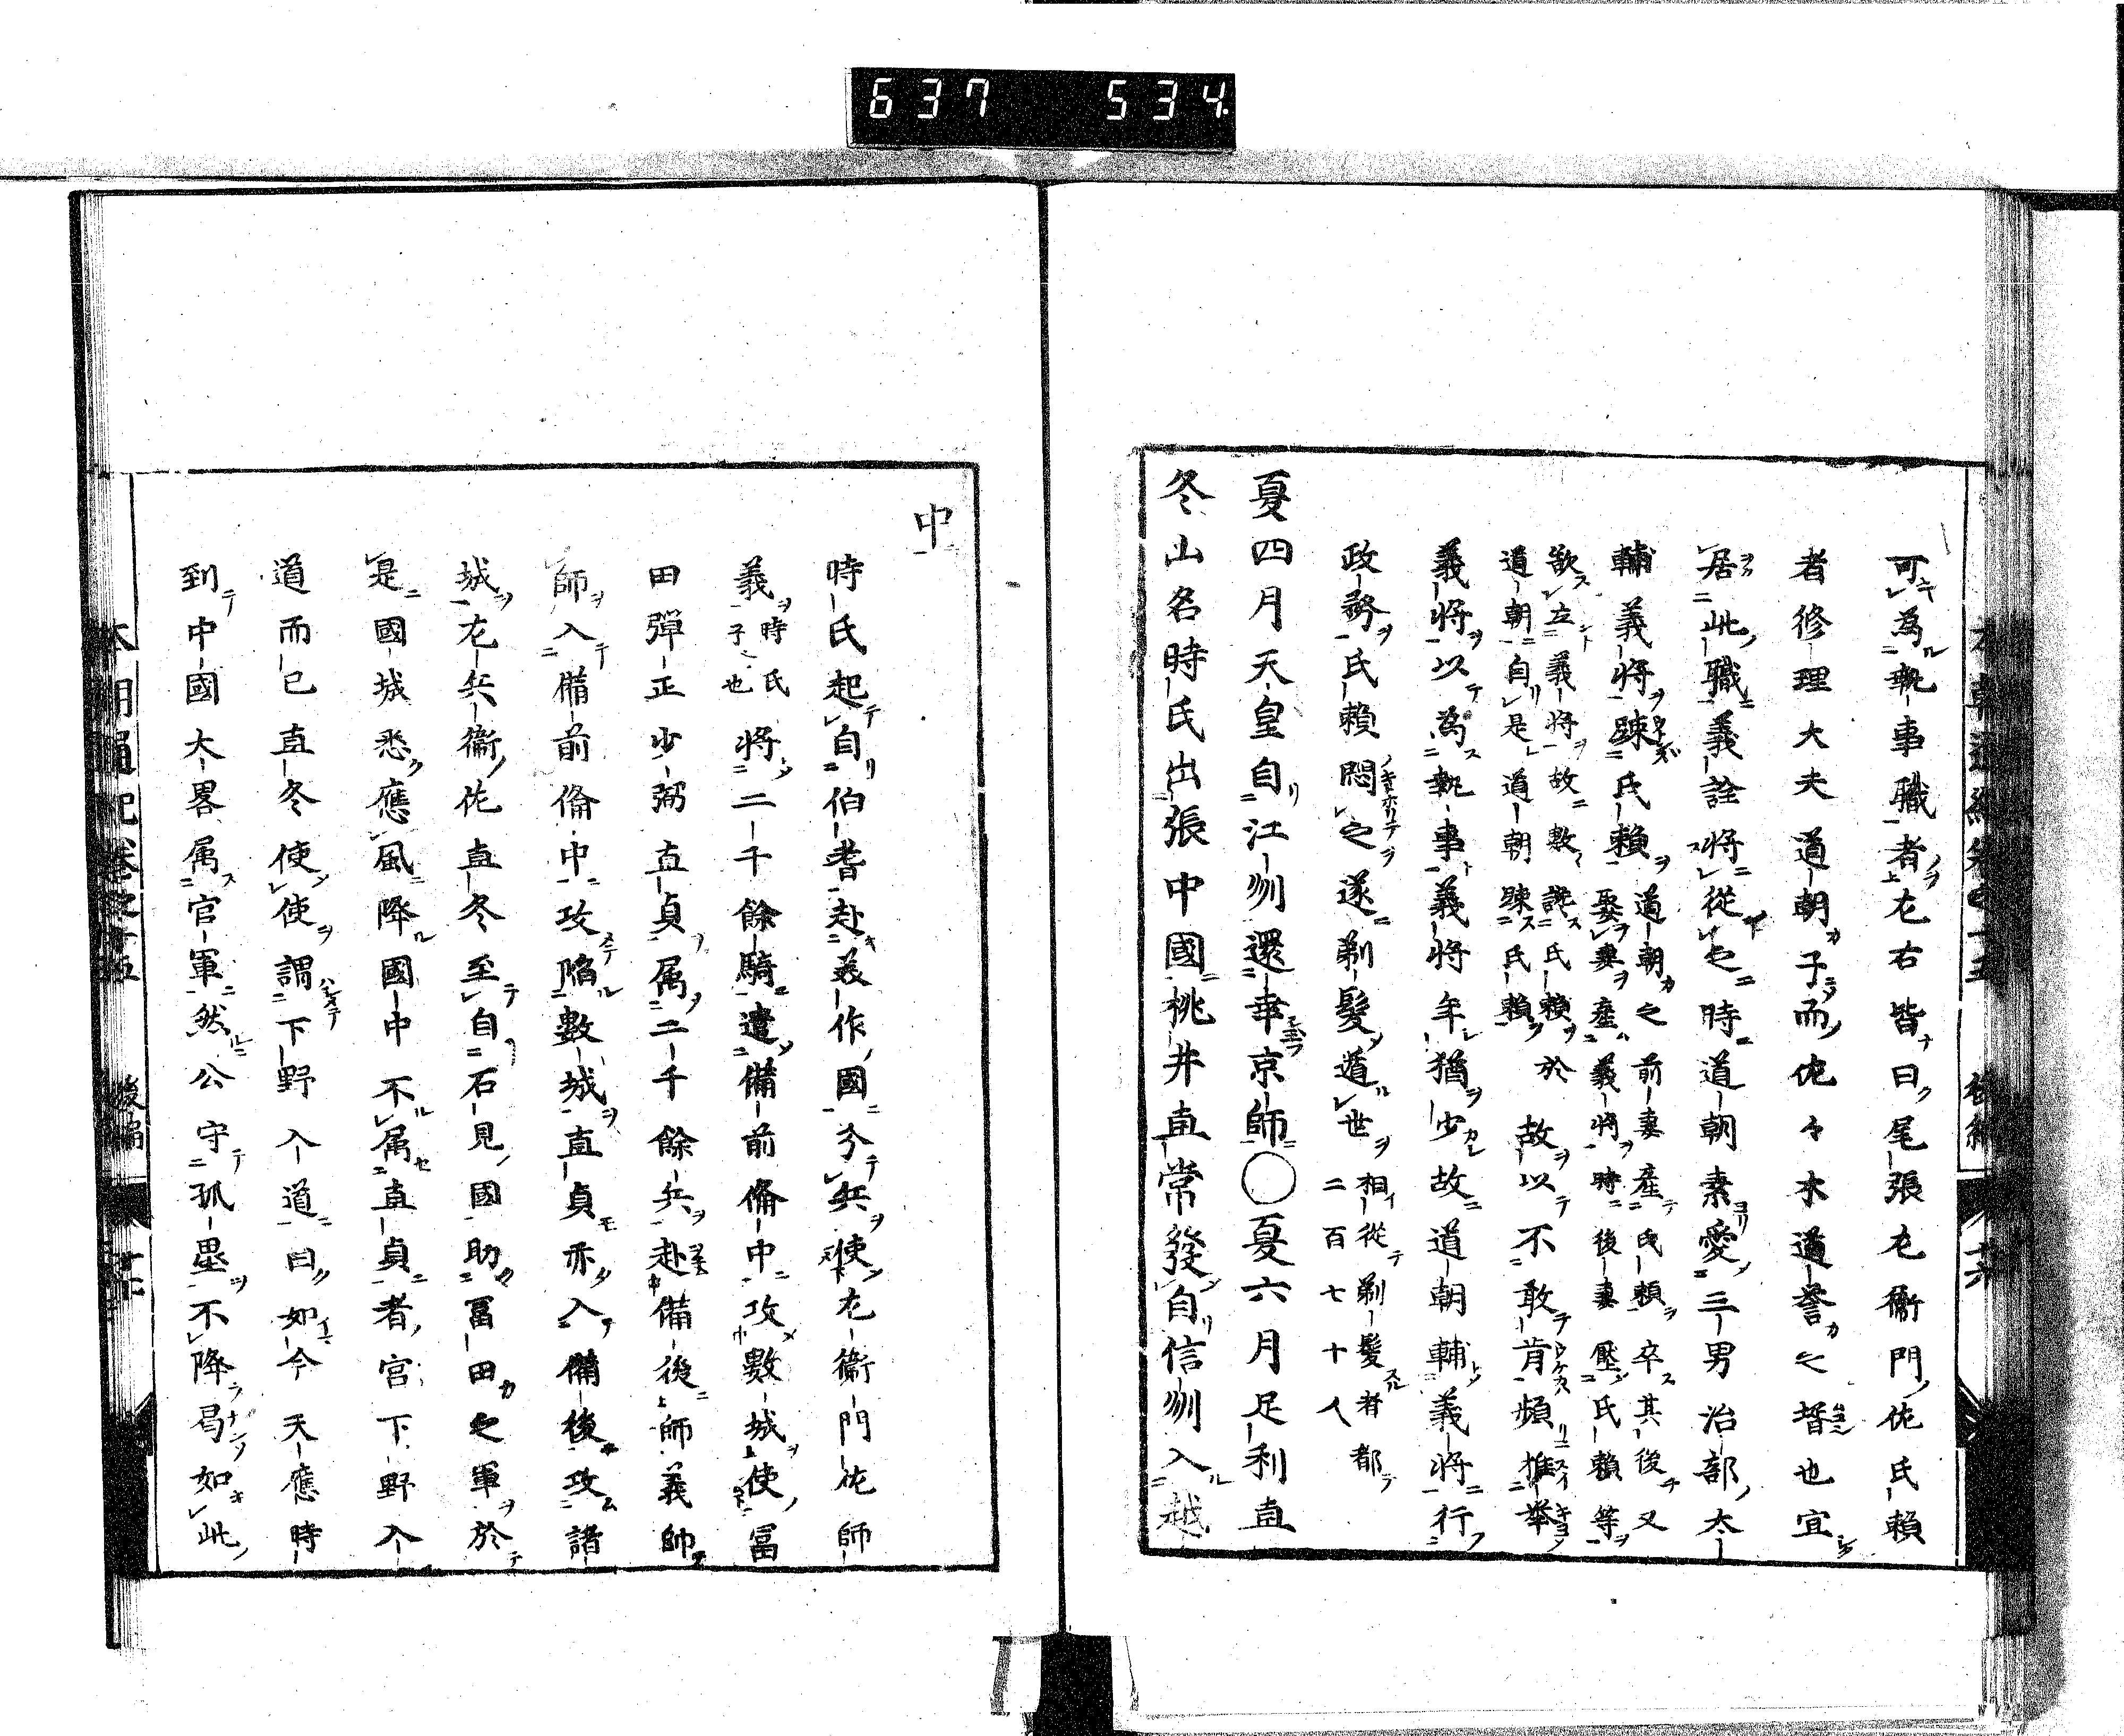 637 534
可為執事職者左右皆曰尾張左衞門佐氏賴
者修理大夫道朝子而佐々木道譽之壻也宜
居此職義詮將從之時道朝素愛三男治部大
輔義將踈氏賴道朝之前妻產氏賴卒其後又
娶妻產義將時後妻壓氏賴等
欲立義將故數譖氏賴於
道朝自是道朝踈氏賴故以不敢肯頻推舉
義將以為執事義將年猶少故道朝輔義將行
政務氏賴悶之遂剃髮遁世相從剃髮者都
二百七十人
夏四月天皇自江州還幸京師○夏六月足利直
冬山名時氏出張中國桃井直常發自信州入越
中
時氏起自伯耆赴美作國分兵使左衞門佐師
義時氏
子也將二千餘騎遣備前備中攻數城使冨
田彈正少弼直貞属二千餘兵赴備後師義帥
師入備前備中攻陷數城直貞亦入備後攻諸
城左兵衞佐直冬至自石見國助冨田之軍於
是國城悉應風降國中不属直貞者宮下野入
道而已直冬使使謂下野入道曰如今天應時
到中國大畧属官軍然公守孤壘不降曷如此
本朝通紀卷之十五 後編